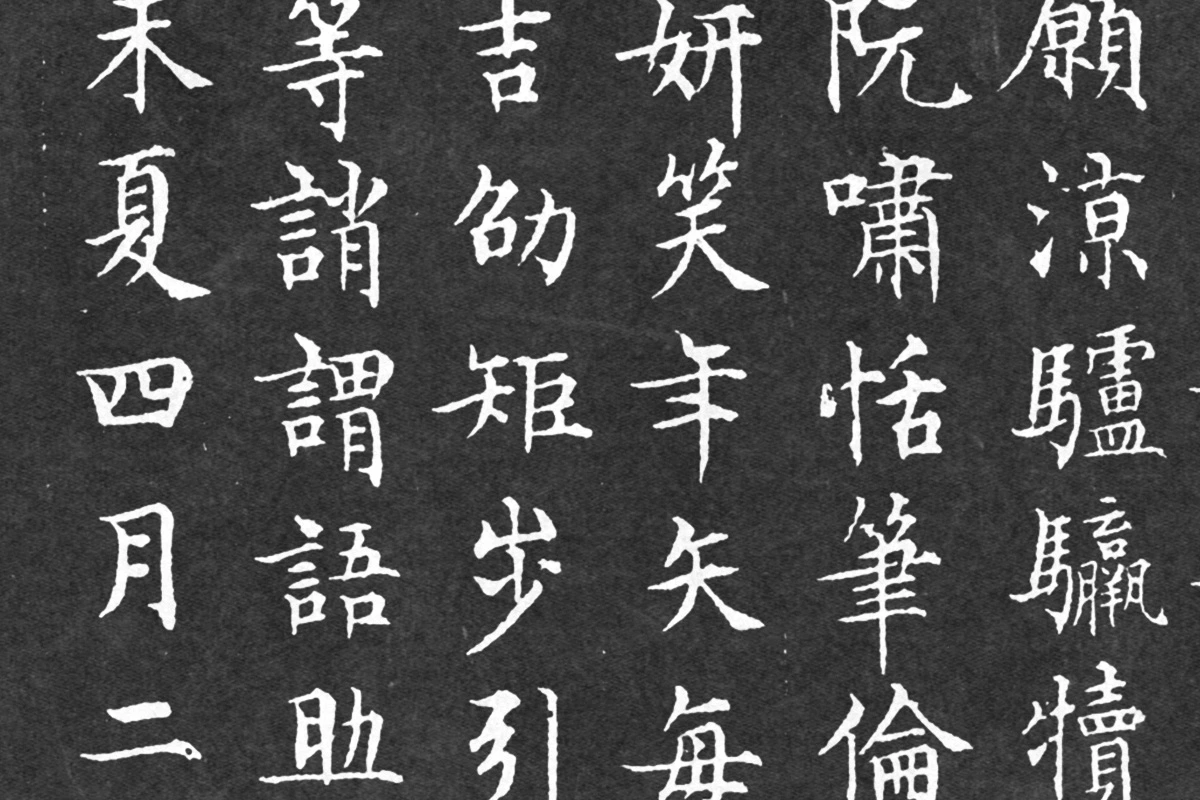 願涼驢騾犢
阮嘯恬筆倫
妍笑年矢每
吉劭矩步引
等誚謂語助
未夏四月二